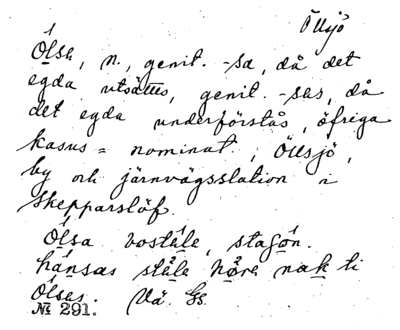 Öllsjö
Ölsa, n., genit. -sa, då det
egda utsättes, genit. -sas, då
det egda underförstås, öfriga
kasus = nominat, Öllsjö,
by och järnvägsstation i
Skepparslöf.
Ölsa bostele, stasön.
hánsas ståle nåra nak ti
Ölsas. Vä. Gs.
№ 291.